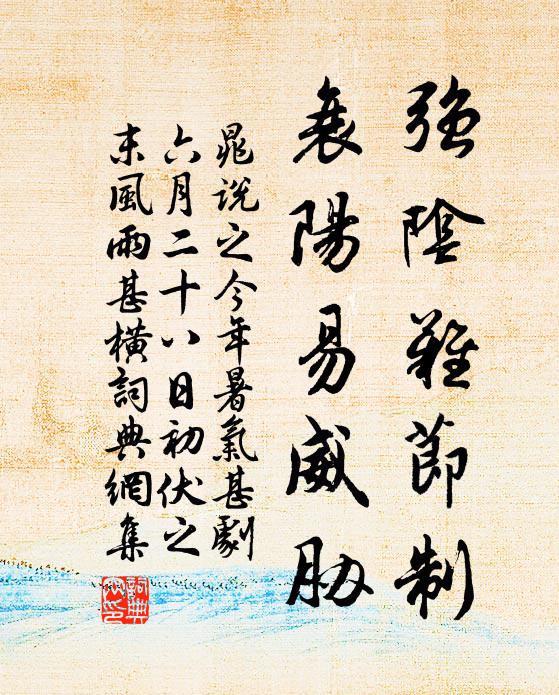 強陰難節制
衰陽易威胁
晁説之今年暑氣甚劇
六月二十八日初伏之
末風雨甚橫詞典網集